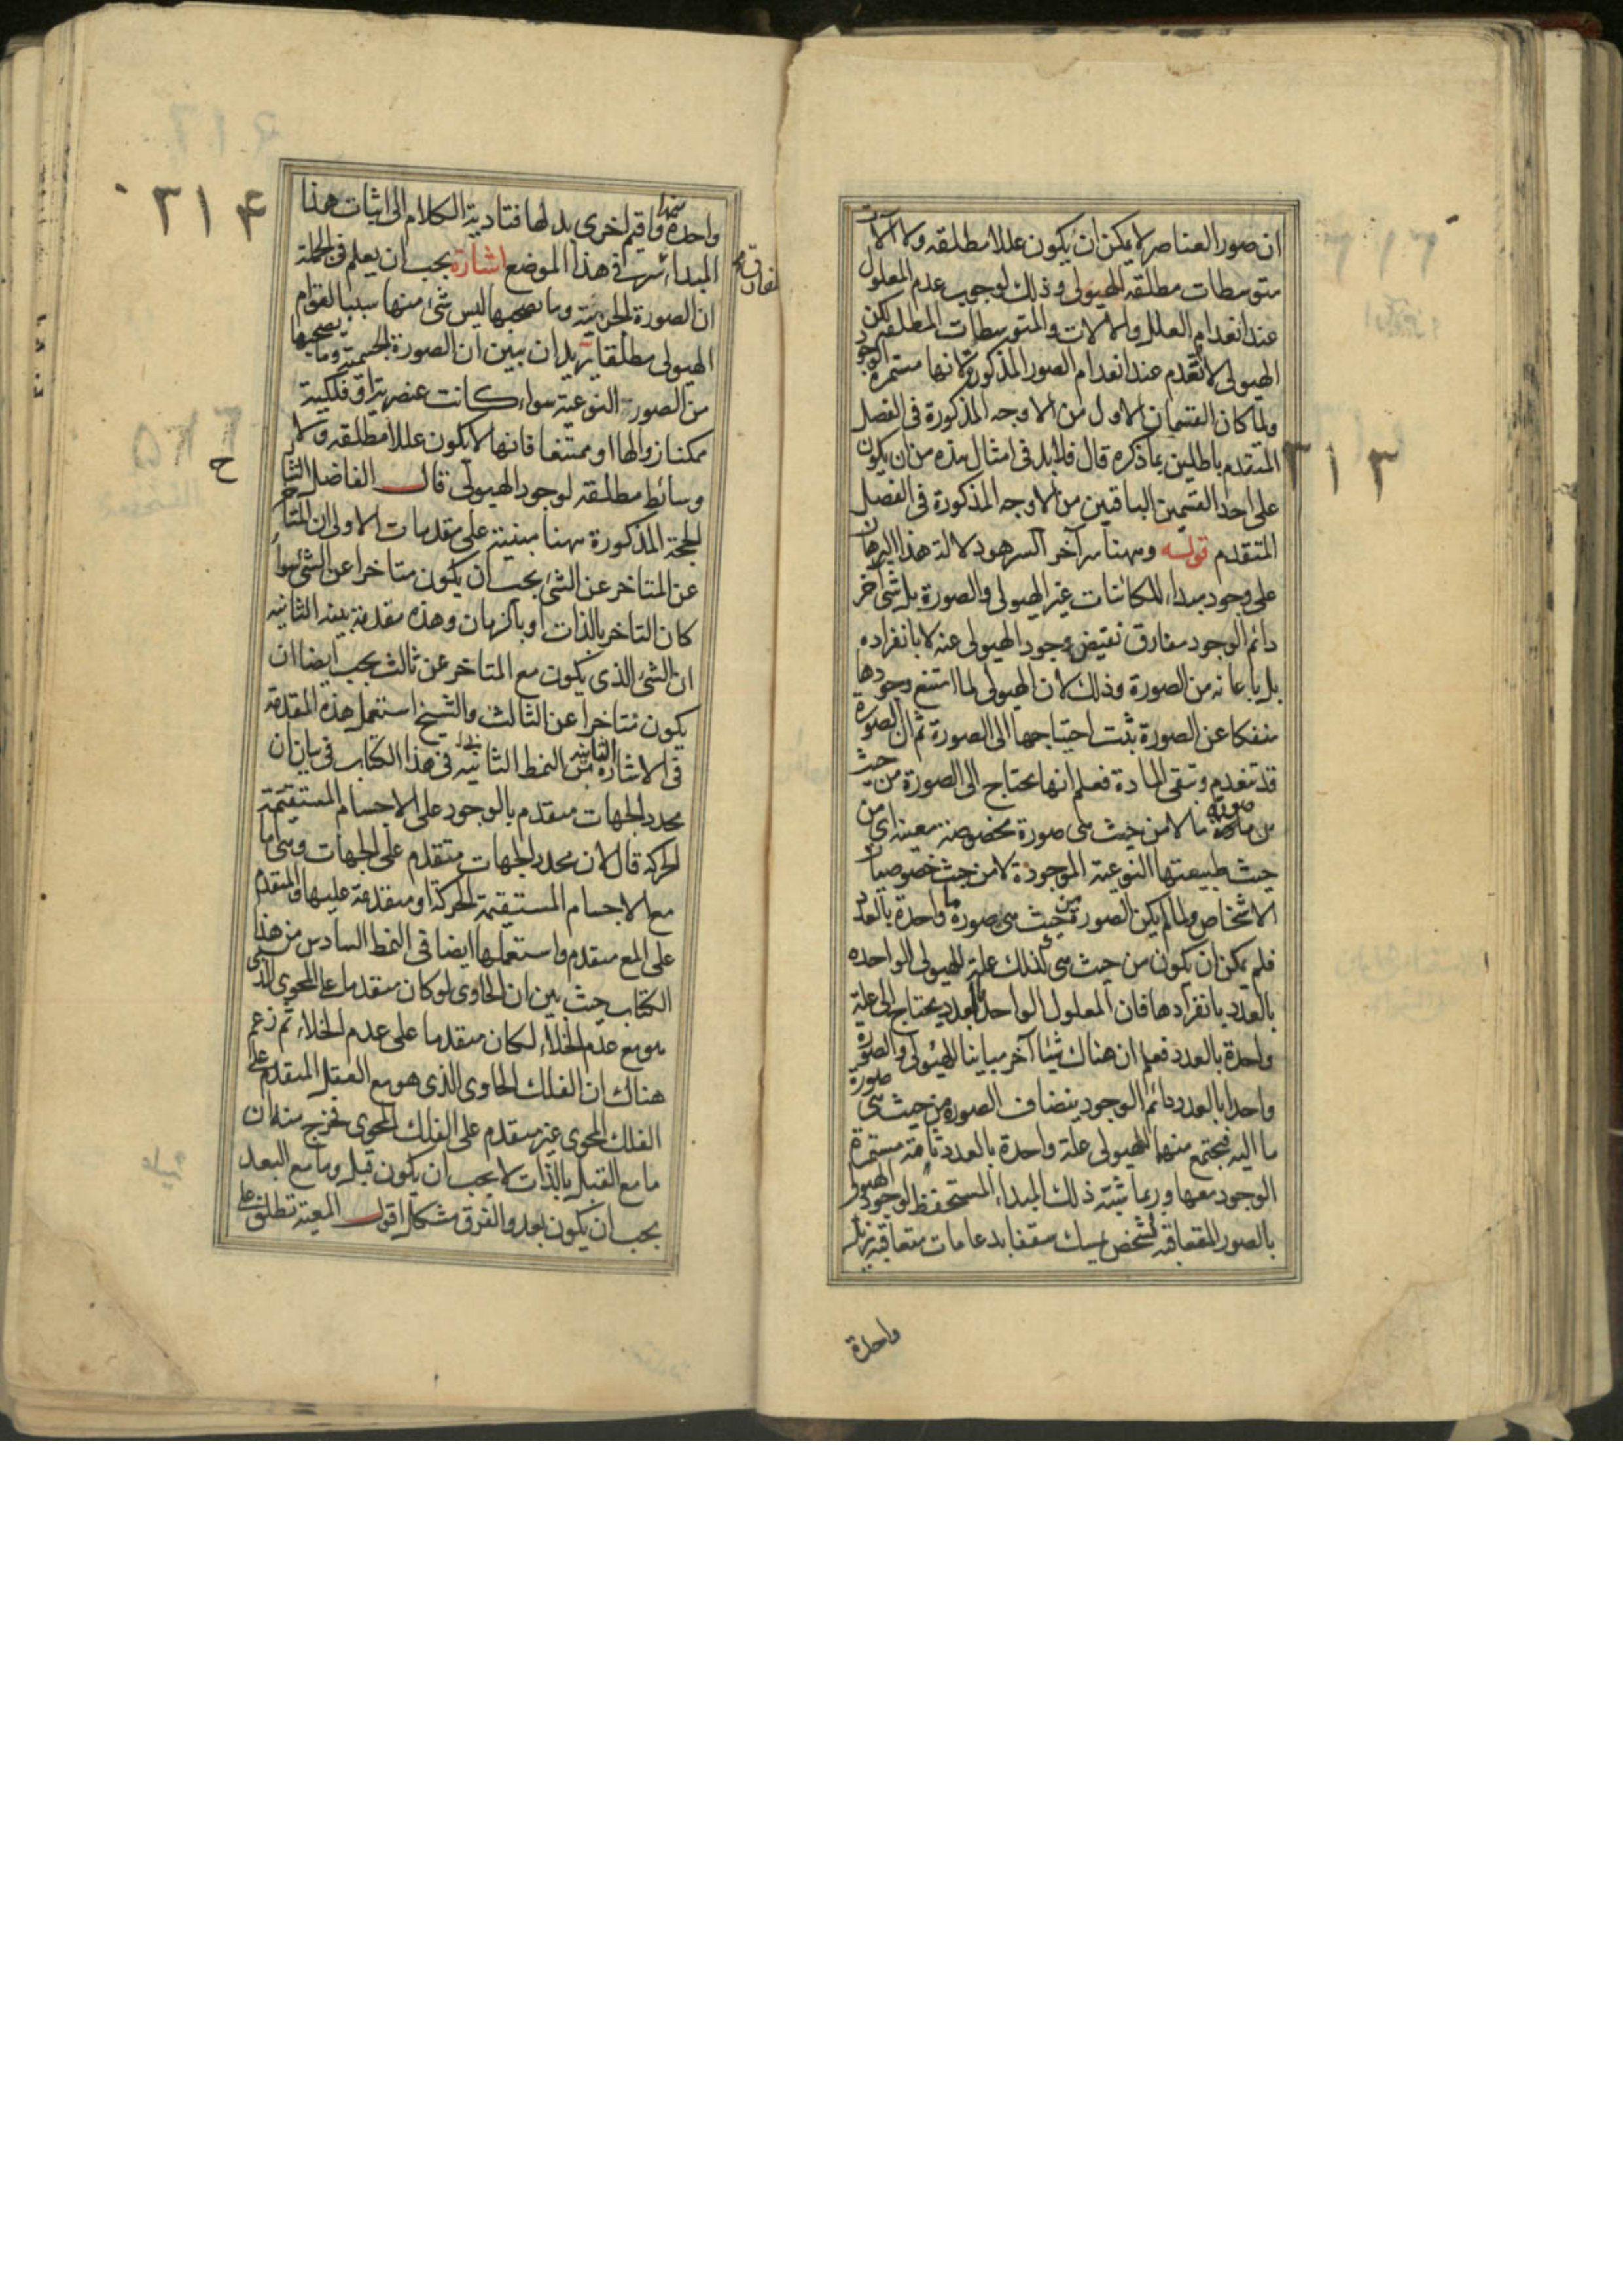 ان صور العناصر لا يمكن ان يكون عللا مطلقه ولا آلات
متوسطات مطلقه للهيولى وذلك لوجوب عدم المعلول
عند انعدام العلل والالات والمتوسطات المطلقه لكن
الهيولى لا تنعدم عند انعدام الصور المذكورة لانها مستمرة الوجود
ولما كان القسمان الاولان من الاوجه المذكورة فى الفصل
المتقدم باطلين بما ذكره قال فلابد فى امثال هذه من ان يكون
على احد القسمين الباقيين من الاوجه المذكورة فى الفصل
المتقدم قوله وههنا سر آخر السر هو دلالة هذا البرهان
على وجود مبداء للكائنات غير الهيولى والصورة بل شئ آخر
دائم الوجود مفارق تفيض وجود الهيولى عنه لا بانفراده
بل باعانه من الصورة وذلك لان الهيولى لما امتنع وجودها
منفكا عن الصورة ثبت احتياجها الى الصورة ثم ان الصورة
قد تنعدم وتبقى المادة فعلم انها تحتاج الى الصورة من حيث
هى صورة ما لا من حيث هى صورة مخصوصة معينه اى من
حيث طبيعتها النوعية الموجودة لا من حيث خصوصيات
الاشخاص ولما لم يكن الصور من حيث هى صورة ما واحدة بالعدد
فلم يمكن ان يكون من حيث هى كذلك علة للهيولى الواحده
بالعدد بانفرادها فان المعلول الواحد بالعدد يحتاج الى علة
واحدة بالعدد فعلم ان هناك شيئا آخر مباينا للهيولى والصورة
واحدا بالعدد دائم الوجود ينضاف الصورة من حيث هى صورة
ما اليه فيجتمع منهما للهيولى علة واحدة بالعدد تامة مستمرة
الوجود معها وربما شبه ذلك المبداء المستحفظ لوجود الهيولى
بالصور المتعاقبه بشخص يمسك سقفا بدعامات متعاقبه يزيل
واحدة
٣١٣
٣١۴
واحدة منها واقيم اخرى بدلها فتادية الكلام الى اثبات هذا
المبداء سر فى هذا الموضع اشارة يجب ان يعلم فى الجملة
ان الصورة الجرمية وما يصحبها ليس شئ منها سببا لقوام
الهيولى مطلقا يريد ان يبين ان الصورة الجسمية وما يصحبها
من الصور النوعية سواء كانت عنصرية او فلكية
ممكنا زوالها او ممتنعا فانها لا يكون عللا مطلقه ولا
وسائط مطلقه لوجود الهيولى قال الفاضل الشارح
الحجة المذكورة ههنا مبنية على مقدمات الاولى ان المتأخر
عن المتاخر عن الشئ يجب ان يكون متاخرا عن الشئ سواء
كان التاخر بالذات او بالزمان وهذه مقدمة بينه الثانيه
ان الشئ الذى يكون مع المتاخر عن ثالث يجب ايضا ان
يكون متاخرا عن الثالث والشيخ استعمل هذه المقدمة
فى الاشارة الثانية من النمط الثانى فى هذا الكتاب فى بيان ان
محدد الجهات متقدم بالوجود على الاجسام المستقيمة
الحركه قال لان محدد الجهات متقدم على الجهات وهى اما
مع الاجسام المستقيمة الحركة او متقدمة عليها والمتقدم
على المع متقدم واستعملها ايضا فى النمط السادس من هذا
الكتاب حيث بين ان الحاوى لو كان متقدما على المحوى الذى
هو مع عدم الخلاء لكان متقدما على عدم الخلاء ثم زعم
هناك ان الفلك الحاوى الذى هو مع العقل المتقدم على
الفلك المحوى غير متقدم على الفلك المحوى فخرج منه ان
ما مع القبل بالذات لا يجب ان يكون قبل وما مع البعد
يجب ان يكون بعد والفرق مشكل اقول المعية تطلق على